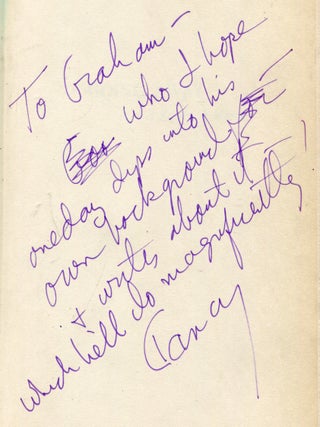 To Graham —
who I hope
oneday dips into his
own background —
& writes about it — !
which he'll do magnificently